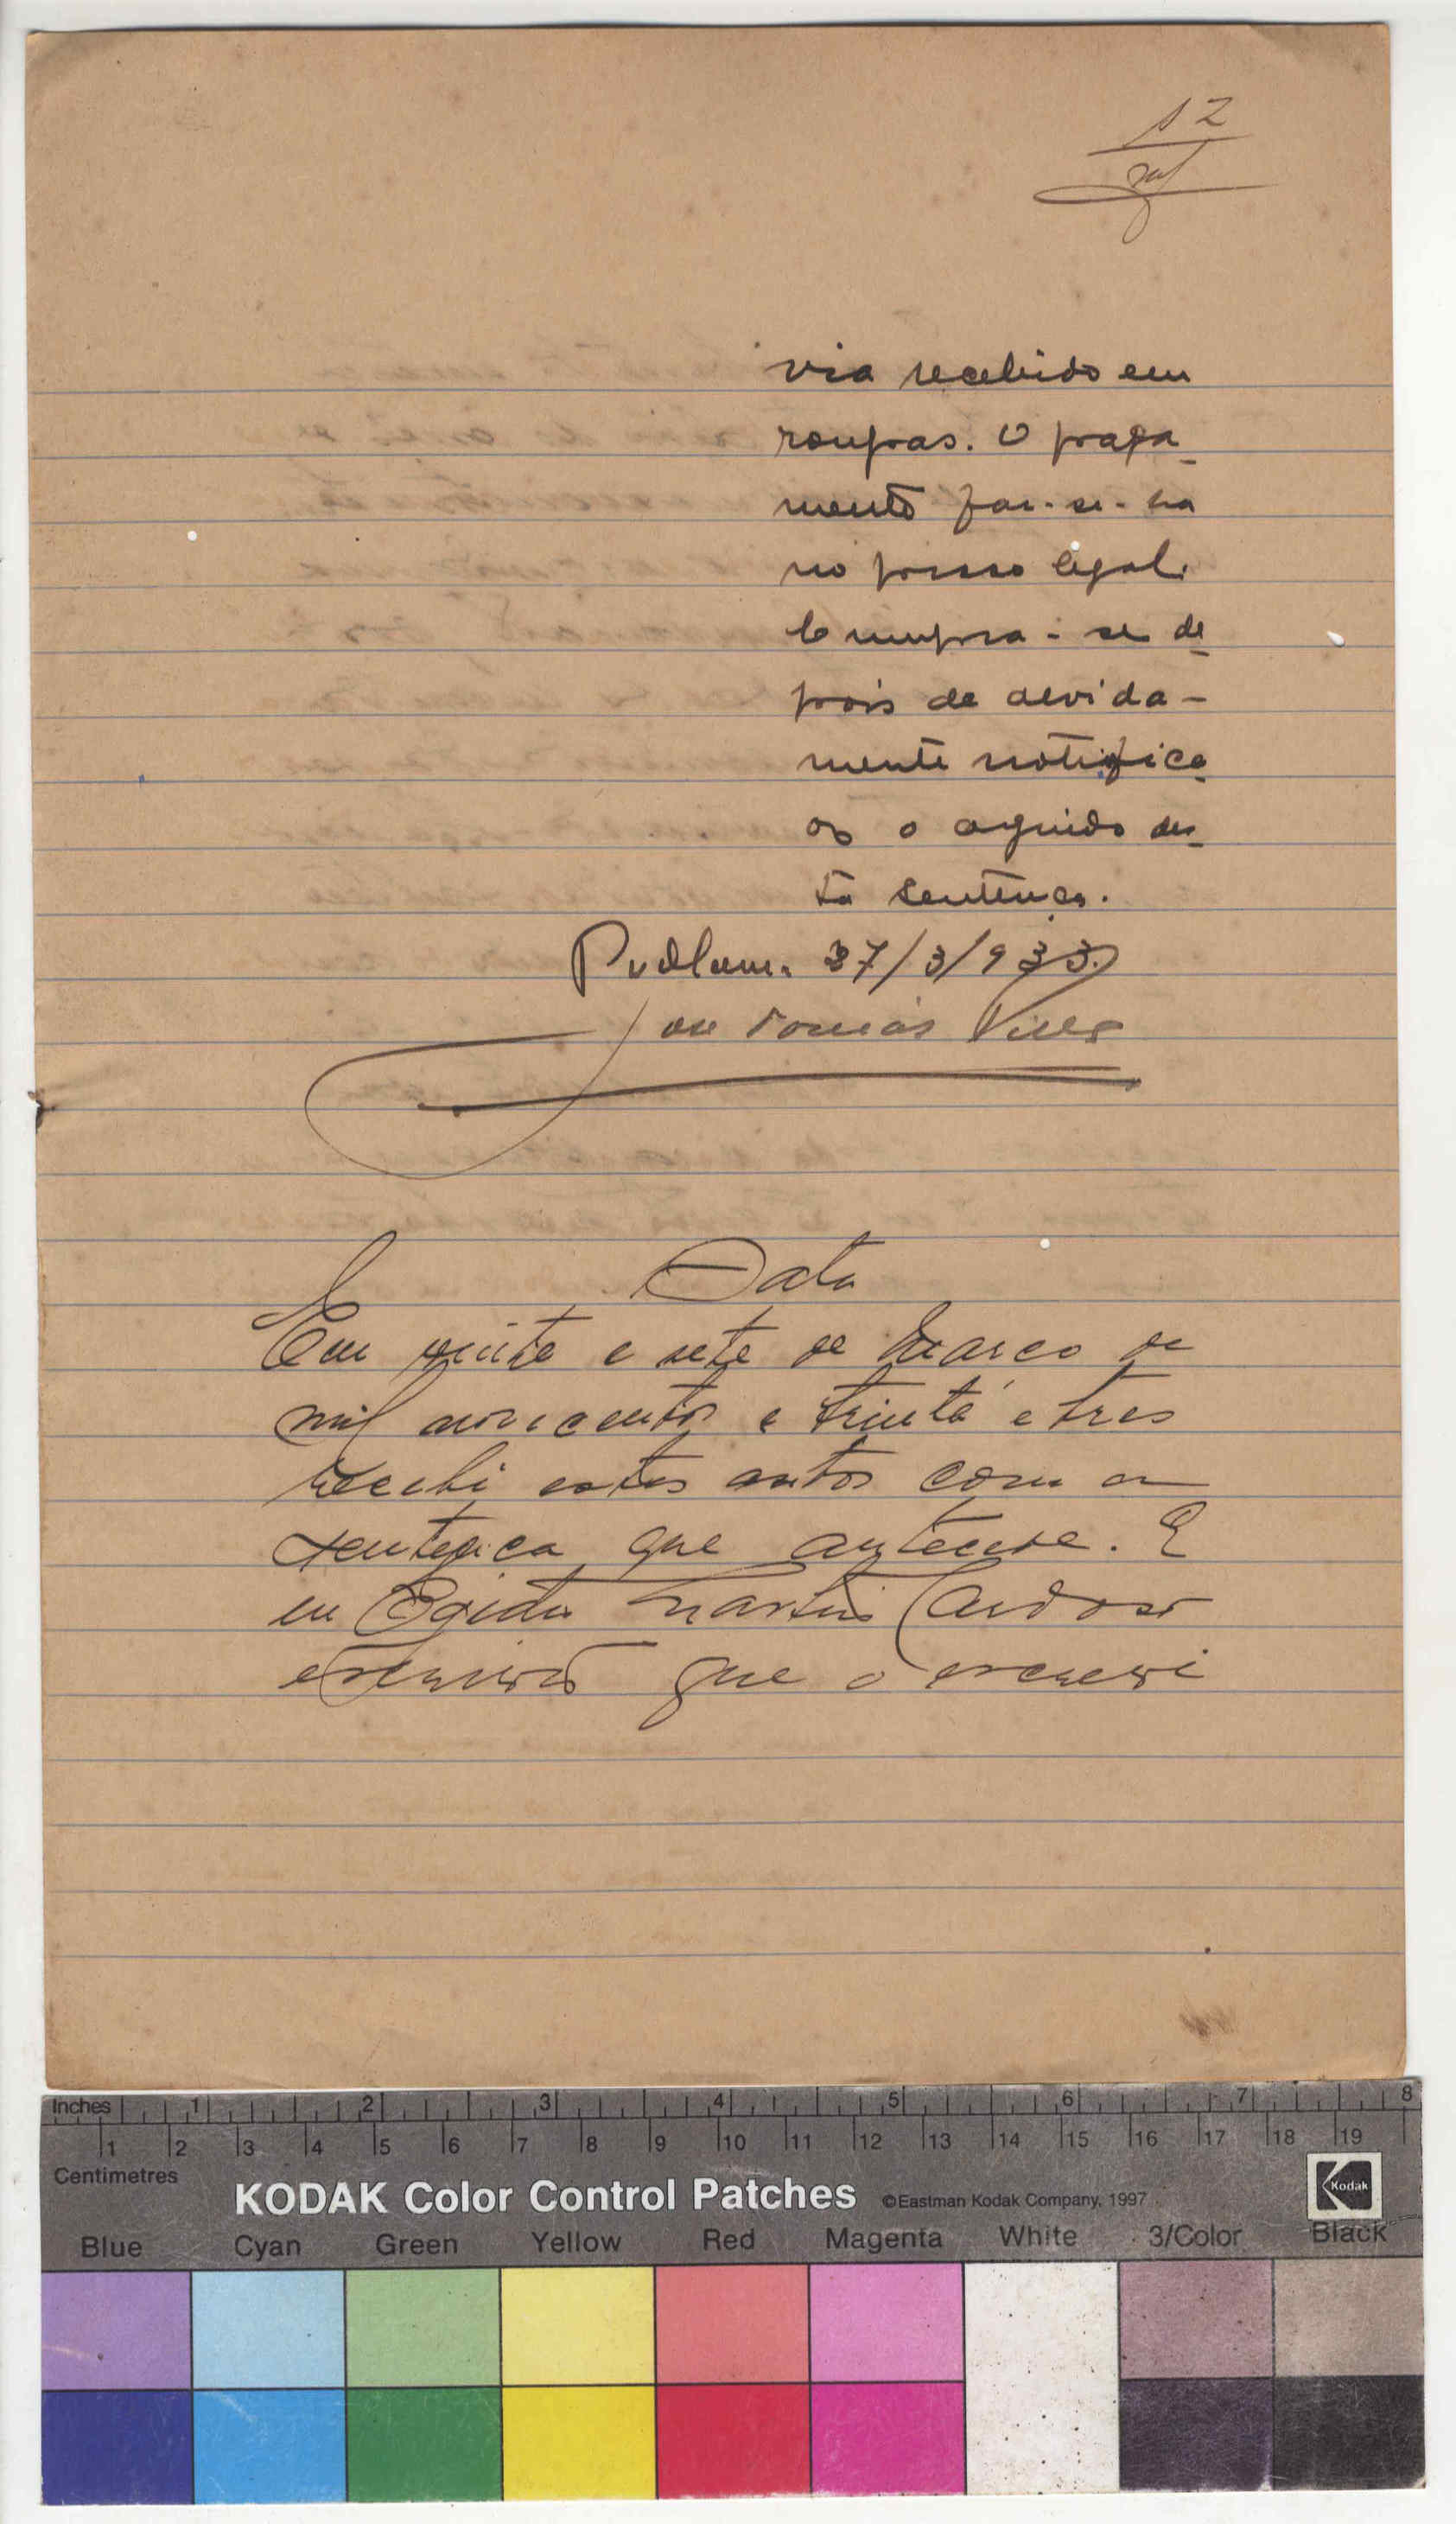 12
via recebido em
roupas. O paga-
mento far-se-ha
no praso legal.
Cumpra-se de-
pois de devida-
mente notifica-
do o arguido des-
ta sentença.
27/3/933.
José Tomás
Data
Em vinte e sete de Março de
mil novecentos e trinta e tres
recebi estes autos com a
sentença que antecede. E
eu Egidio Martins Cardoso
escrivão que o escrevi
Inches 1 2 3 4 5 6 7 8
1 2 3 4 5 6 7 8 9 10 11 12 13 14 15 16 17 18 19
Centimetres
KODAK Color Control Patches ©Eastman Kodak Company, 1997 Kodak
Blue Cyan Green Yellow Red Magenta White 3/Color Black